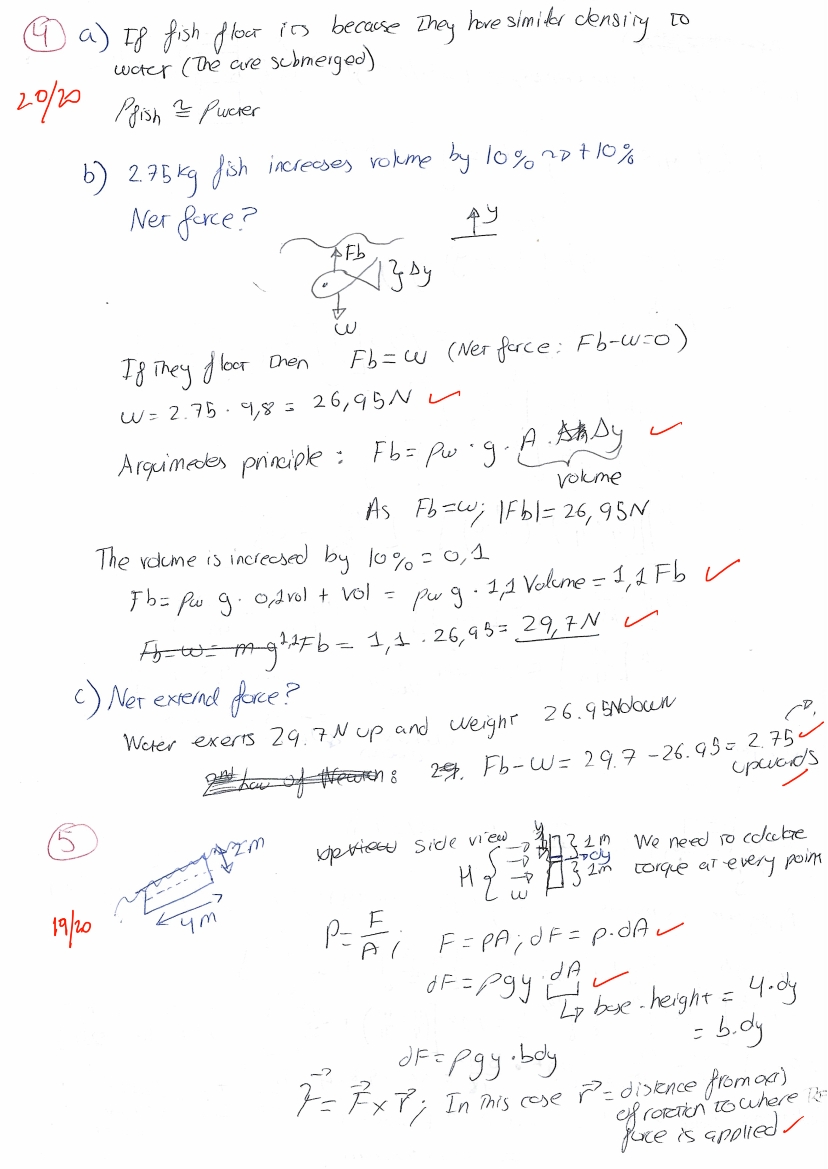 4 a) If fish float its because they have similar density to
water (The are submerged)
20/20
ρfish ≅ ρwater
b) 2.75kg fish increases volume by 10% ~> +10%
Net force?
y
Fb
Δy
w
If they float then Fb = w (Net force: Fb-w=0)
w = 2.75 · 9,8 = 26,95N ✓
Arquimedes principle: Fb = ρw · g · A · Δy ✓
volume
As Fb=w; |Fb|= 26,95N
The volume is increased by 10% = 0,1
Fb = ρw g · 0,1vol + vol = ρw g · 1,1 Volume = 1,1 Fb ✓
Fb-w = m·g 1,1Fb = 1,1 · 26,95 = 29,7N ✓
c) Net external force?
Water exerts 29.7N up and weight 26.95N down
2nd Law of Newton: Fb-w = 29.7 - 26.95 = 2.75 ✓
upwards
5
19/20
2m
4m
upview side view
H
y
w
1m
dy
1m
We need to calculate
torque at every point
P = F/A ; F = PA ; dF = p·dA ✓
dF = ρgy · dA ✓
↳ base · height = 4·dy
= b.dy
dF = ρgy · bdy
τ⃗ = F⃗ x r⃗ ; In this case r⃗ = distance from axis
of rotation to where
force is applied ✓